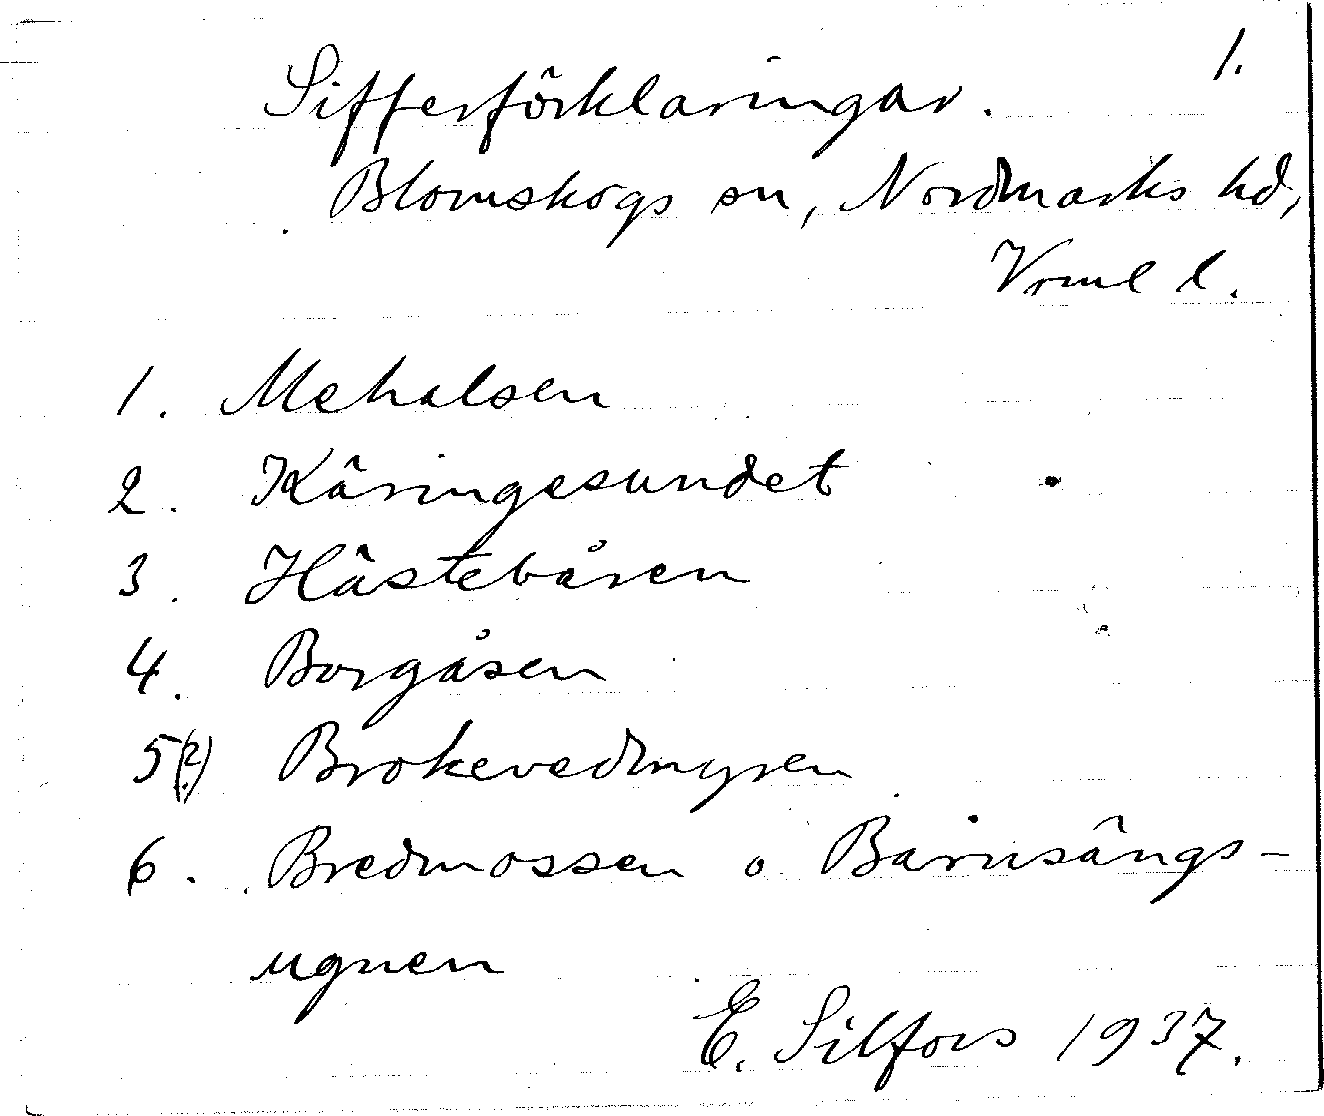 1.
Sifferförklaringar.
Blomskogs sn, Nordmarks hd,
Vrml l.
1. Mehalsen
2. Käringesundet
3. Hästebåren
4. Borgåsen
5(?) Brokevedmyren
6. Bredmossen o Barnsängs-
ugnen
E. Silfors 1937.